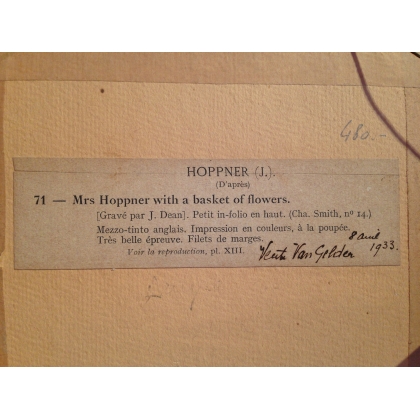 480.-
HOPPNER (J.).
(D'après)
71 — Mrs Hoppner with a basket of flowers.
[Gravé par J. Dean]. Petit in-folio en haut. (Cha. Smith, nº 14.)
Mezzo-tinto anglais. Impression en couleurs, à la poupée.
Très belle épreuve. Filets de marges.
Voir la reproduction, pl. XIII.
Vente Van Gelder 8 avril 1933.